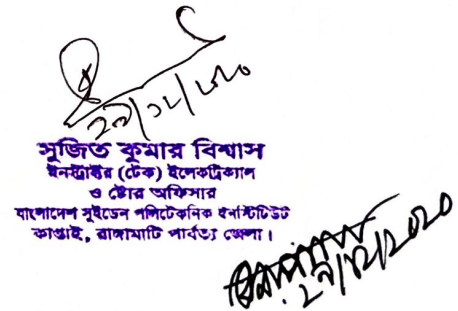 ২৯/১২/২০২০
সুজিত কুমার বিশ্বাস
ইনস্ট্রাক্টর (টেক) ইলেকট্রিক্যাল
ও ষ্টোর অফিসার
বাংলাদেশ সুইডেন পলিটেকনিক ইনস্টিটিউট
কাপ্তাই, রাঙ্গামাটি পার্বত্য জেলা।